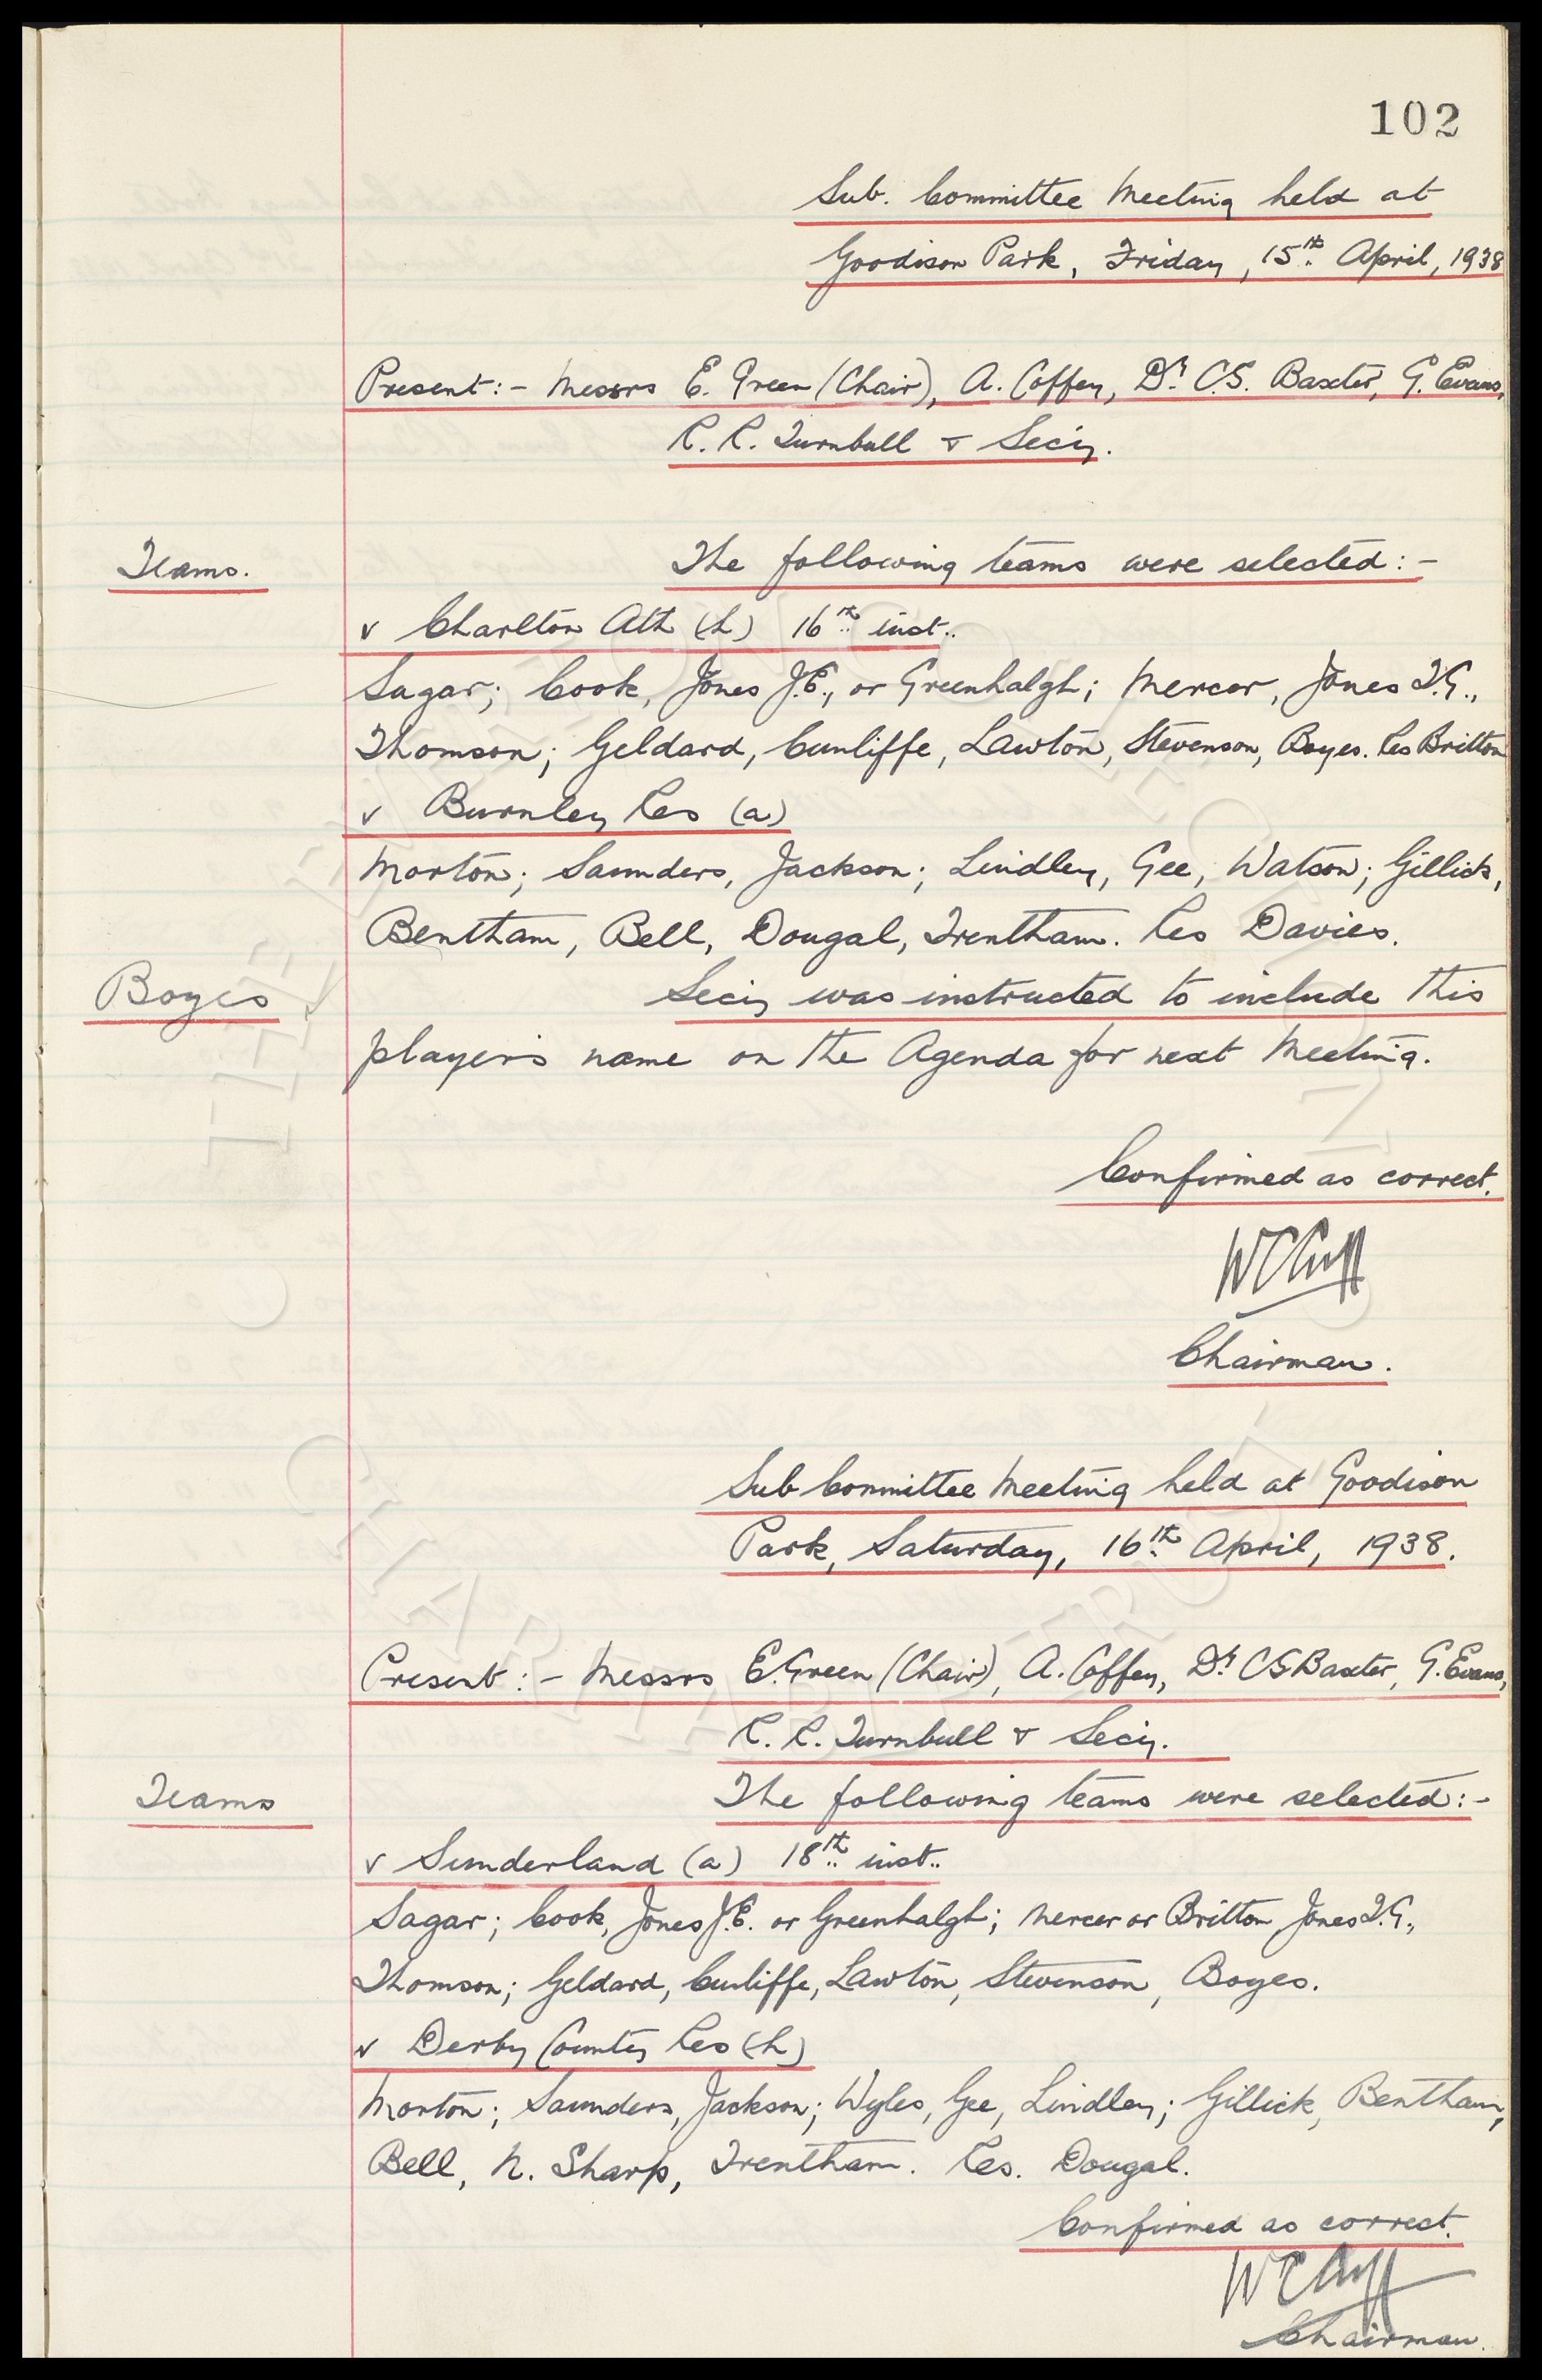 102
Sub. Committee Meeting held at
Goodison Park, Friday, 15th April, 1938
Present:- Messrs E. Green (Chair), A. Coffey, Dr. C.S. Baxter, G. Evans,
R. R. Turnbull & Secy.
Teams.
The following teams were selected:-
v Charlton Ath (h) 16th inst..
Sagar; Cook, Jones J.E., or Greenhalgh; Mercer, Jones T.G.,
Thomson; Geldard, Cunliffe, Lawton, Stevenson, Boyes. Res Britton
v Burnley Res (a)
Morton; Saunders, Jackson; Lindley, Gee, Watson; Gillick,
Bentham, Bell, Dougal, Trentham. Res Davies.
Boyes
Secy was instructed to include this
player's name on the Agenda for next Meeting.
Confirmed as correct.
WC Cuff
Chairman.
Sub Committee Meeting held at Goodison
Park, Saturday, 16th April, 1938.
Present:- Messrs E. Green (Chair), A. Coffey, Dr. CS Baxter, G. Evans,
R. R. Turnbull & Secy.
Teams
The following teams were selected:-
v Sunderland (a) 18th inst..
Sagar; Cook, Jones J.E. or Greenhalgh; Mercer or Britton, Jones T.G.,
Thomson; Geldard, Cunliffe, Lawton, Stevenson, Boyes.
v Derby County Res (h)
Morton; Saunders, Jackson; Wyles, Gee, Lindley; Gillick, Bentham,
Bell, N. Sharp, Trentham. Res. Dougal.
Confirmed as correct.
WC Cuff
Chairman.